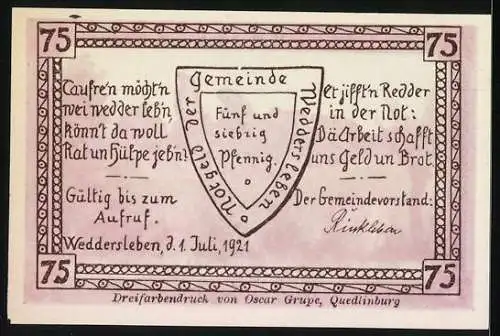 75
75
Caufre'n möcht'n
wei wedder leb'n,
könn't da woll
Rat un Hülpe jeb'n?
Gültig bis zum
Aufruf.
Weddersleben, d. 1. Juli, 1921
Notgeld der Gemeinde Weddersleben
Fünf und
siebzig
Pfennig.
Et jifft'n Redder
in der Not:
Dä Arbeit schafft
uns Geld un Brot.
Der Gemeindevorstand:
75
75
Dreifarbendruck von Oscar Grupe, Quedlinburg